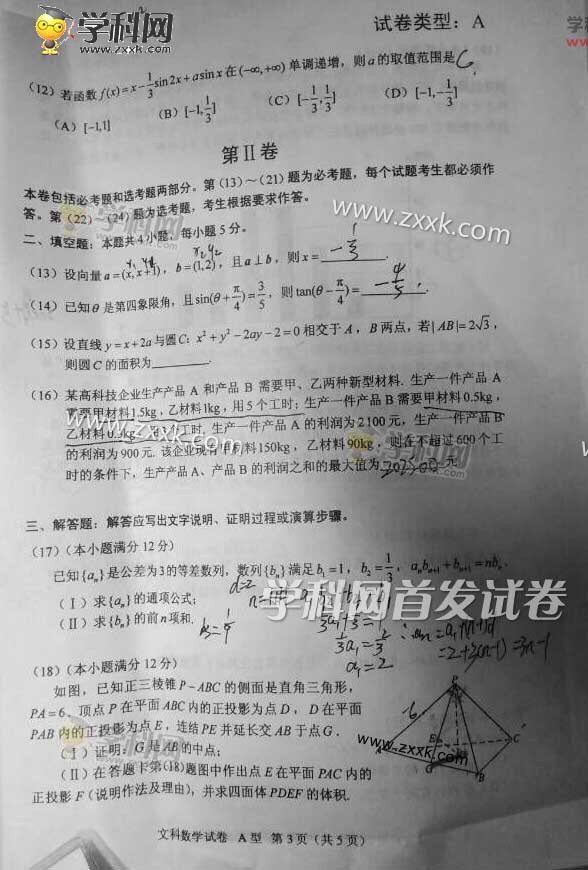 学科网
www.zxxk.com
试卷类型：A
学
(12) 若函数f(x)=x-1/3sin2x+asinx在(-∞,+∞)单调递增，则a的取值范围是C
(A) [-1,1] (B) [-1,1/3] (C) [-1/3,1/3] (D) [-1,-1/3]
第Ⅱ卷
本卷包括必考题和选考题两部分。第（13）～（21）题为必考题，每个试题考生都必须作
答。第（22）～（24）题为选考题，考生根据要求作答。
www.zxxk.com
二、填空题：本题共4小题，每小题5分。
(13) 设向量a=(x,x+1)，b=(1,2)，且a⊥b，则x= -1/3 .
(14) 已知θ是第四象限角，且sin(θ+π/4)=3/5，则tan(θ-π/4)= -4/5 .
(15) 设直线y=x+2a与圆C：x²+y²-2ay-2=0相交于A，B两点，若|AB|=2√3，
则圆C的面积为 .
(16) 某高科技企业生产产品A和产品B需要甲、乙两种新型材料. 生产一件产品A
需要甲材料1.5kg，乙材料1kg，用5个工时；生产一件产品B需要甲材料0.5kg，
乙材料0.3kg，用3个工时. 生产一件产品A的利润为2100元，生产一件产品B
的利润为900元. 该企业现有甲材料150kg，乙材料90kg，则在不超过600个工
时的条件下，生产产品A、产品B的利润之和的最大值为 元
www.zxxk.com
三、解答题：解答应写出文字说明、证明过程或演算步骤。
(17)（本小题满分12分）
已知{aₙ}是公差为3的等差数列，数列{bₙ}满足b₁=1，b₂=1/3，aₙbₙ₊₁+bₙ₊₁=nbₙ.
（Ⅰ）求{aₙ}的通项公式；
（Ⅱ）求{bₙ}的前n项和.
学科网首发试卷
1/3a₁+1/3=1
1/3a₁=2/3
a₁=2
∴an=a₁+(n-1)d
=2+3(n-1)=3n-1
(18)（本小题满分12分）
如图，已知正三棱锥P-ABC的侧面是直角三角形，
PA=6，顶点P在平面ABC内的正投影为点D，D在平面
PAB内的正投影为点E，连结PE并延长交AB于点G.
（Ⅰ）证明：G是AB的中点；
（Ⅱ）在答题卡第(18)题图中作出点E在平面PAC内的
正投影F（说明作法及理由），并求四面体PDEF的体积.
P
6
A
E
D
C
G
B
www.zxxk.com
文科数学试卷 A型 第3页（共5页）